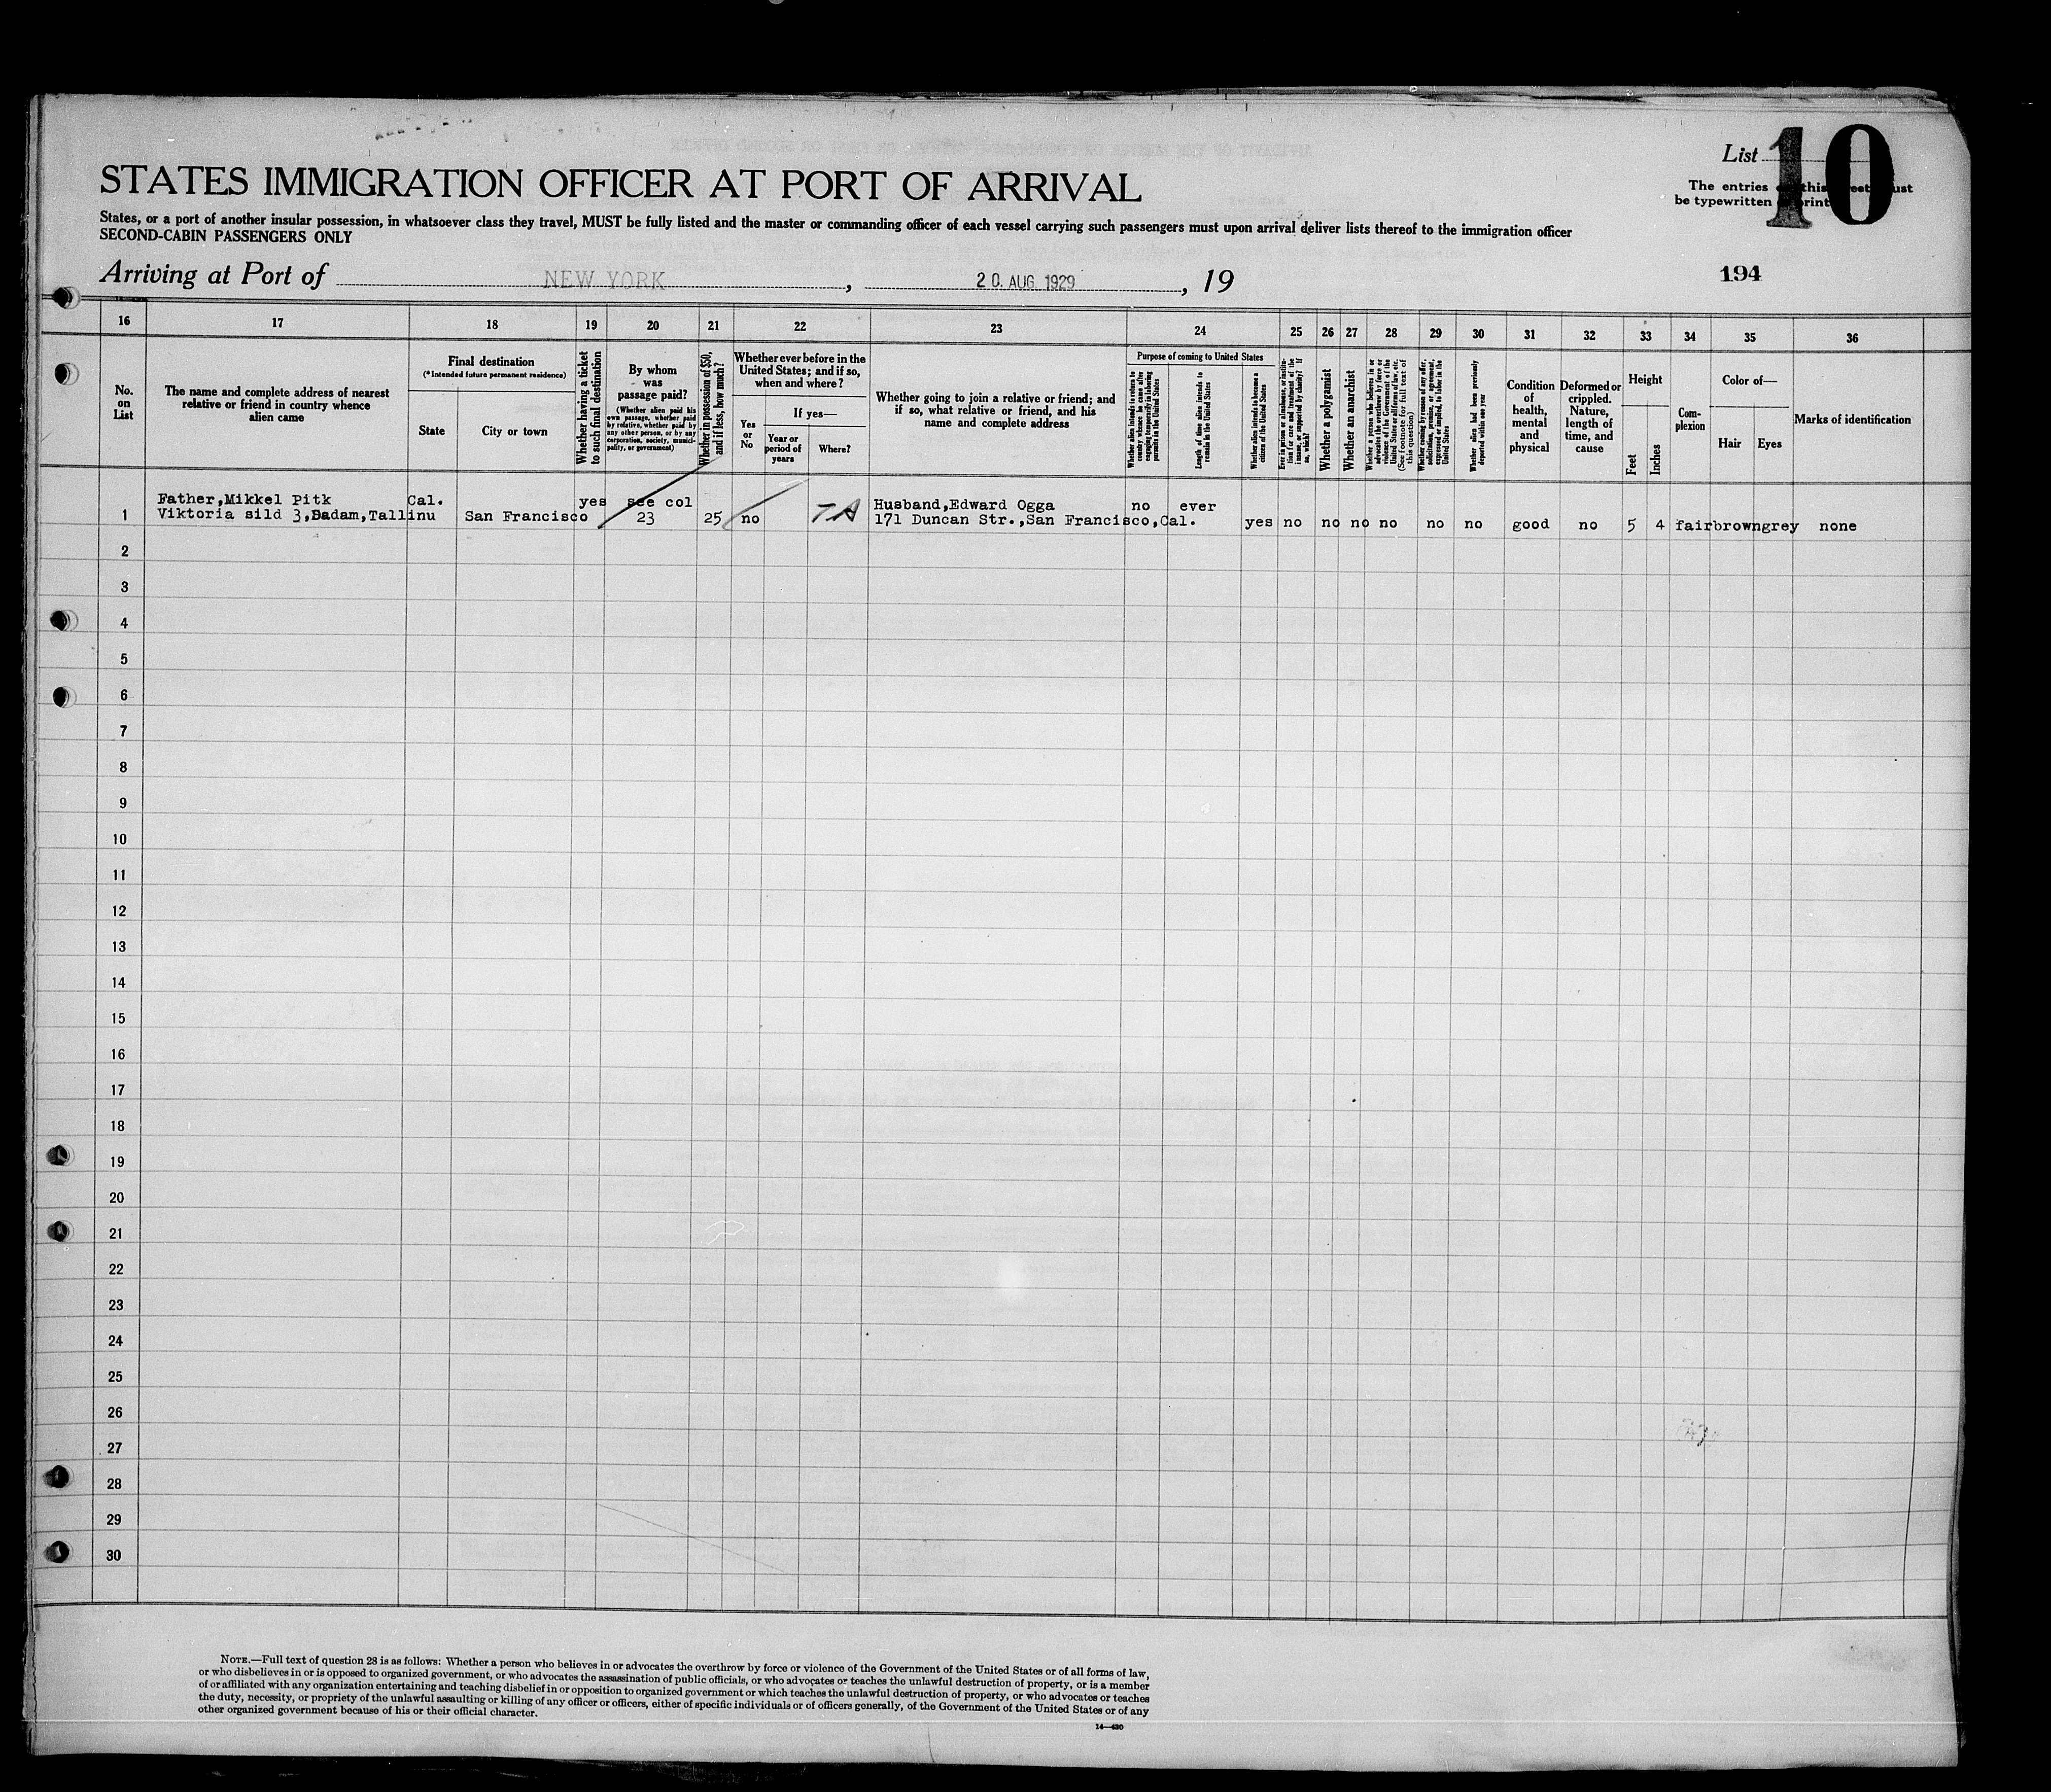 List 10
STATES IMMIGRATION OFFICER AT PORT OF ARRIVAL
The entries this must
be typewritten print
States, or a port of another insular possession, in whatsoever class they travel, MUST be fully listed and the master or commanding officer of each vessel carrying such passengers must upon arrival deliver lists thereof to the immigration officer
SECOND-CABIN PASSENGERS ONLY
Arriving at Port of NEW YORK, 20. AUG. 1929, 19
194
16 17 18 19 20 21 22 23 24 25 26 27 28 29 30 31 32 33 34 35 36
No.
on
List
The name and complete address of nearest
relative or friend in country whence
alien came
Final destination
(*Intended future permanent residence)
State
City or town
Whether having a ticket
to such final destination
By whom
was
passage paid?
(Whether alien paid his
own passage, whether paid
by relative, whether paid by
any other person, or by any
corporation, society, munici-
pality, or government)
Whether in possession of $50,
and if less, how much?
Whether ever before in the
United States; and if so,
when and where?
Yes
or
No
If yes—
Year or
period of
years
Where?
Whether going to join a relative or friend; and
if so, what relative or friend, and his
name and complete address
Purpose of coming to United States
Whether alien intends to return to
country whence he came after
engaging temporarily in laboring
pursuits in the United States
Length of time alien intends to
remain in the United States
Whether alien intends to become a
citizen of the United States
Ever in prison or almshouse, or institu-
tion for care and treatment of the
insane, or supported by charity? If
so, which?
Whether a polygamist
Whether an anarchist
Whether a person who believes in or
advocates the overthrow by force or
violence of the Government of the
United States or all forms of law, etc.
(See footnote for full text of
this question)
Whether coming by reason of any offer,
solicitation, promise, or agreement,
expressed or implied, to labor in the
United States
Whether alien had been previously
deported within one year
Condition
of
health,
mental
and
physical
Deformed or
crippled.
Nature,
length of
time, and
cause
Height
Feet
Inches
Com-
plexion
Color of—
Hair
Eyes
Marks of identification
Father,Mikkel Pitk Cal. yes see col Husband,Edward Ogga no ever
1 Viktoria sild 3,Badam,Tallinu San Francisco 23 25 no TA 171 Duncan Str.,San Francisco,Cal. yes no no no no no no good no 5 4 fair brown grey none
2
3
4
5
6
7
8
9
10
11
12
13
14
15
16
17
18
19
20
21
22
23
24
25
26
27
28
29
30
NOTE.—Full text of question 28 is as follows: Whether a person who believes in or advocates the overthrow by force or violence of the Government of the United States or of all forms of law,
or who disbelieves in or is opposed to organized government, or who advocates the assassination of public officials, or who advocates or teaches the unlawful destruction of property, or is a member
of or affiliated with any organization entertaining and teaching disbelief in or opposition to organized government or which teaches the unlawful destruction of property, or who advocates or teaches
the duty, necessity, or propriety of the unlawful assaulting or killing of any officer or officers, either of specific individuals or of officers generally, of the Government of the United States or of any
other organized government because of his or their official character.
14—430